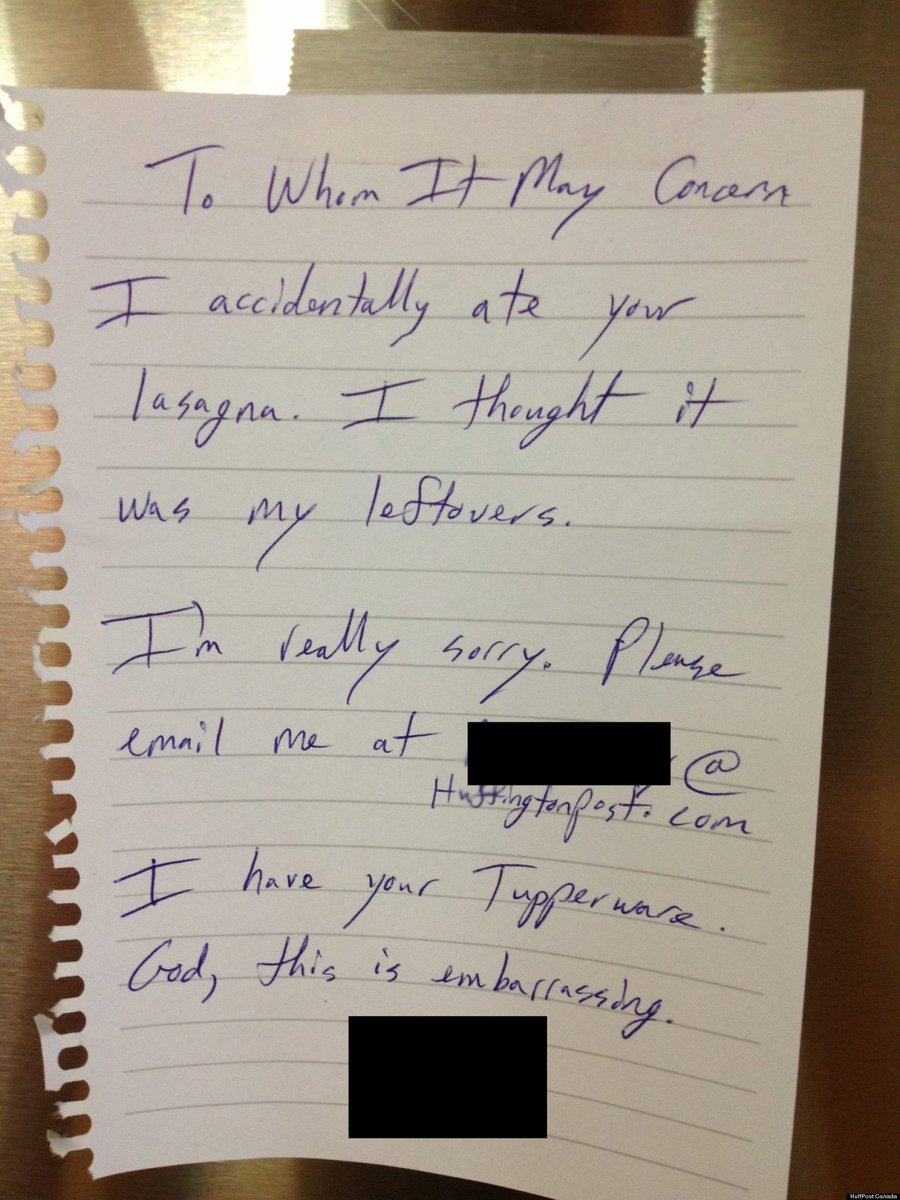 To Whom It May Concern
I accidentally ate your
lasagna. I thought it
was my leftovers.
I'm really sorry. Please
email me at @
Huffingtonpost.com
I have your Tupperware.
God, this is embarrassing.
HuffPost Canada